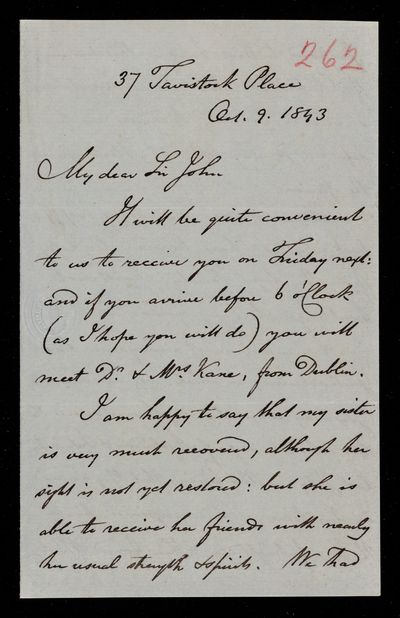 262
37 Tavistock Place
Oct. 9. 1843
My dear Sir John
It will be quite convenient
to us to receive you on Friday next:
and if you arrive before 6 o'Clock
(as I hope you will do) you will
meet Dr. & Mrs Kane, from Dublin.
I am happy to say that my sister
is very much recovered, although her
sight is not yet restored: but she is
able to receive her friends with nearly
her usual strength & spirits. We had